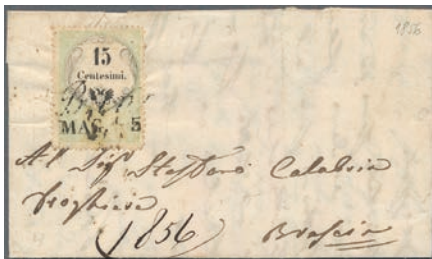 1856
15
Centesimi.
MAG. 5
Al Sig.r Steffano Calabria
Droghiere
1856 Brescia